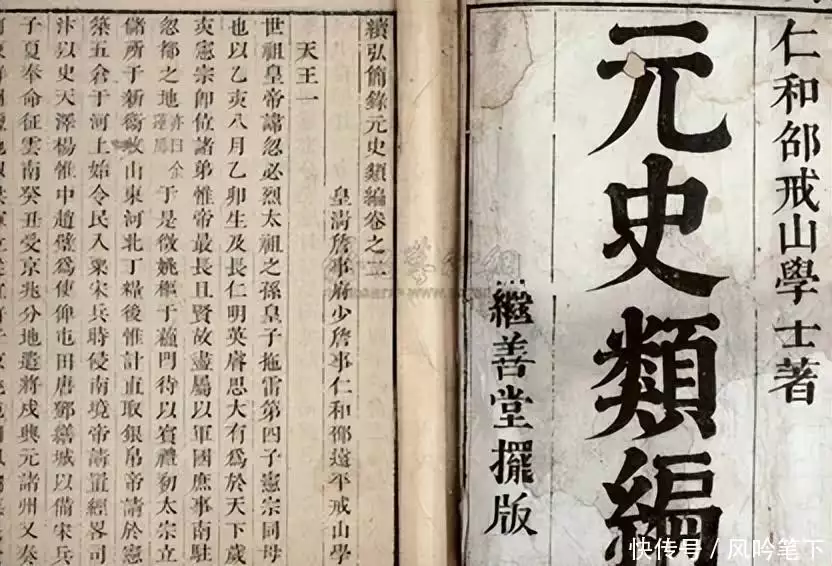 仁和邵戒山學士著
元史類編
繼善堂擺版
續弘簡錄元史類編卷之二
皇淸詹事府少詹事仁和邵遠平戒山學
天王一
世祖皇帝諱忽必烈太祖之孫皇子拖雷第四子憲宗同母
也以乙亥八月乙卯生及長仁明英睿思大有爲於天下歲
亥憲宗卽位諸弟惟帝最長且賢故盡屬以軍國庶事南駐
忽都之地亦曰余于是徵姚樞于蘓門待以賓禮初太宗立
儲所于新衞收山東河北丁糧後惟計直取銀帛帝請於憲
築五倉于河上始令民入粟宋兵時侵南境帝請置經畧司
汴以史天澤楊惟中趙璧爲使俾屯田唐鄧繕城以備宋兵
子夏奉命征雲南癸丑受京兆分地遣將戍興元諸州又奏
快传号/风吟笔下